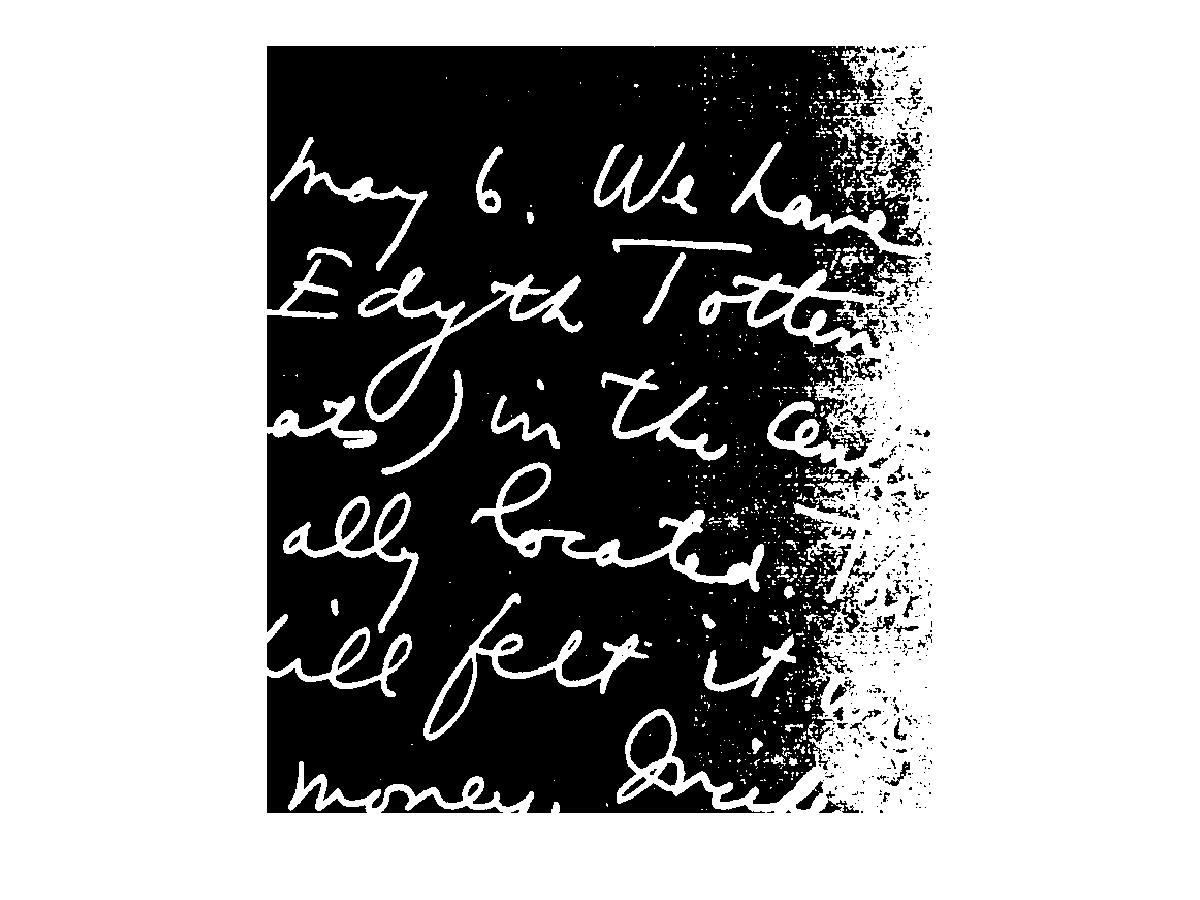 May 6. We have
Edyth Totten
ats) in the
ally located.
felt it
money.